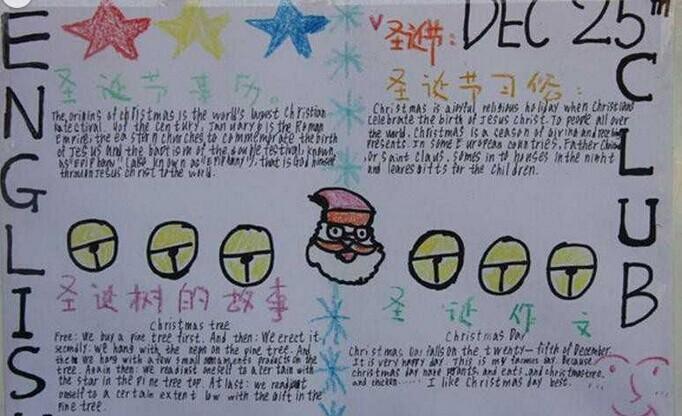 ENGLISH
CLUB
圣诞节:
DEC 25th
圣诞节来历。
The origins of christmas is the world's largest christian
of the century, January 6 is the Roman
Empire; the eastern churches to commemorate the birth
of Jesus and the baptism of the double festival, known
as "EPIPHANY" (also known as "EPIPHANY"), that is God himself
through Jesus christ to the world.
圣诞节习俗:
Christmas is a joyful religious holiday when christians
celebrate the birth of Jesus Christ. To people all over
the world, Christmas is a season of giving and receiving
Presents. In some European countries, Father
Or saint claus, comes in to houses in the night
and leaves gifts for the children.
圣诞树的故事
Christmas tree
Free: We buy a pine tree first. And then: We erect it
secondly: we hang with the neon on the pine tree. And
then we hang with a few small ornaments products on the
tree. Again then: we readjust oneself to a certain with
the star in the pine tree top. At last: we readjust
oneself to a certain extent low with the gift in the
pine tree.
圣诞作文
Christmas Day
Christmas Day falls on the twenty-fifth of December.
It is very happy day. This is my day. Because
christmas day have and cats, and christmas tree,
and chicken...... I like Christmas day best. ......